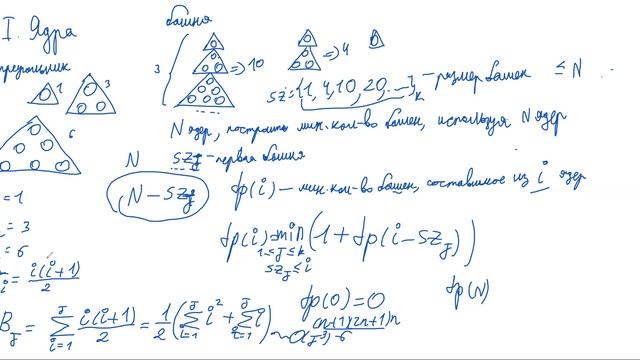 I. Ядра
треугольник
1
3
6
башня
3
=> 10
=> 4
sz = {1, 4, 10, 20, ...}k – размер башен ≤ N
N ядер, построить мин. кол-во башен, используя N ядер
N szj – первая башня
N – szj
dp(i) – мин. кол-во башен, составимое из i ядер
dp(i) = min (1 + dp(i – szj))
1 ≤ j ≤ k
szj ≤ i
dp(0) = 0
dp(N)
= 1
= 3
= 6
i = i(i+1)/2
Bj = Σ i=1 j i(i+1)/2 = 1/2 (Σ i=1 j i² + Σ i=1 j i) ~ O(j³)
(n+1)(2n+1)n
6